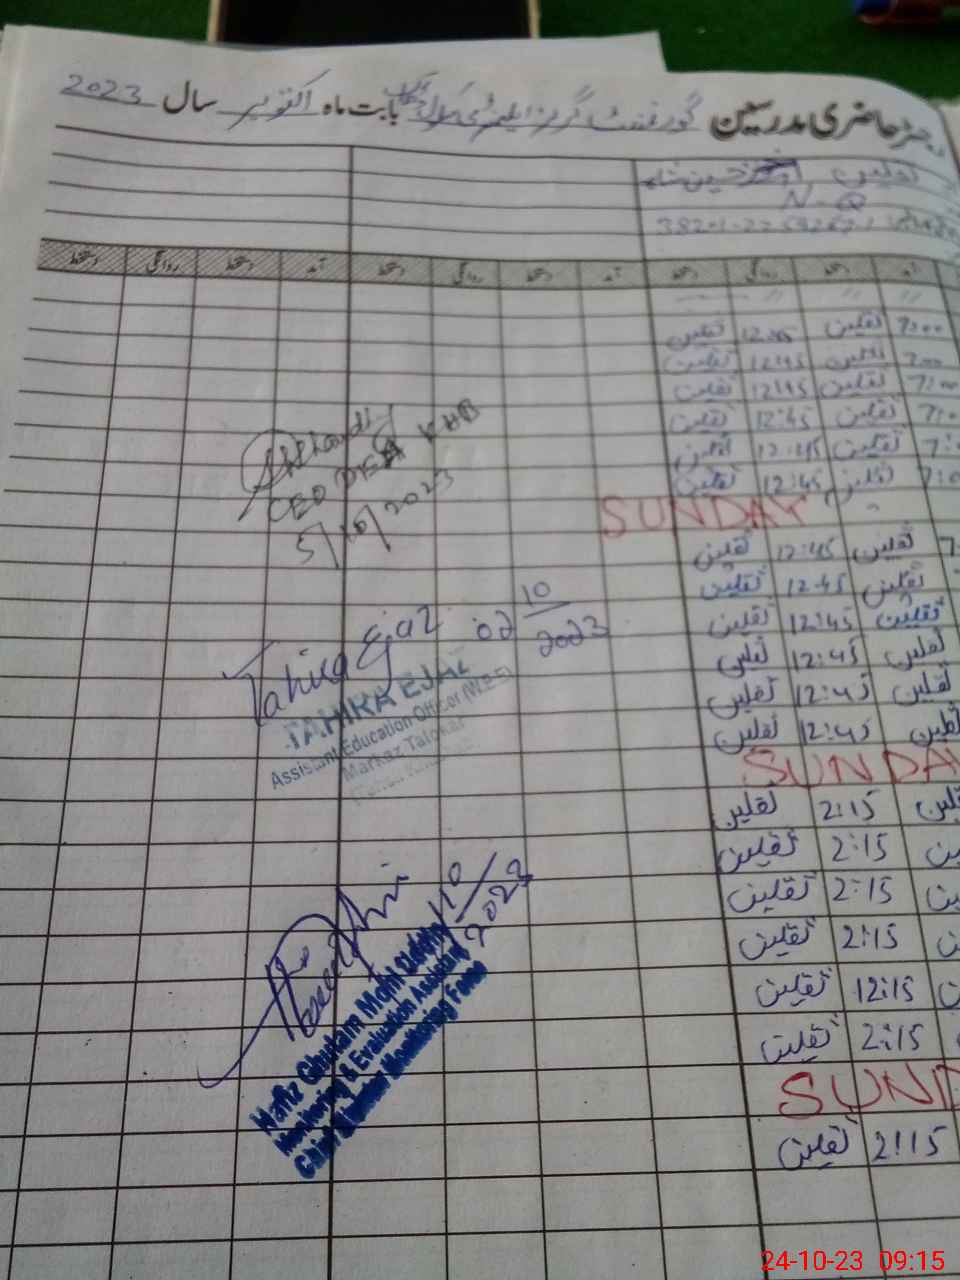 رجسٹر حاضری مدرسین گورنمنٹ گرلز ایلیمنٹری بابت ماہ اکتوبر سال 2023
ثقلین
N-Q
آمد دستخط روانگی دستخط آمد دستخط روانگی دستخط آمد دستخط روانگی دستخط
7:00 ثقلین 12:45 ثقلین
7:00 ثقلین 12:45 ثقلین
7:00 ثقلین 12:45 ثقلین
ثقلین 12:45 ثقلین
ثقلین 12:45 ثقلین
ثقلین 12:45 ثقلین
SUNDAY
ثقلین 12:45 ثقلین
ثقلین 12:45 ثقلین
ثقلین 12:45 ثقلین
ثقلین 12:45 ثقلین
ثقلین 12:45 ثقلین
ثقلین 12:45 ثقلین
SUNDA
2:15 ثقلین
2:15 ثقلین
2:15 ثقلین
2:15 ثقلین
12:15 ثقلین
2:15 ثقلین
SUND
2:15 ثقلین
CEO DEA KHB
5/10/2023
Tahira Ejaz 02 10/2023
TAHIRA EJAZ
Assistant Education Officer (W.E.E)
Markaz Talokar
10/2023
Hafiz Ghulam Mohi Uddin
Monitoring & Evaluation Assistant
Chief Minister Monitoring Force
24-10-23 09:15